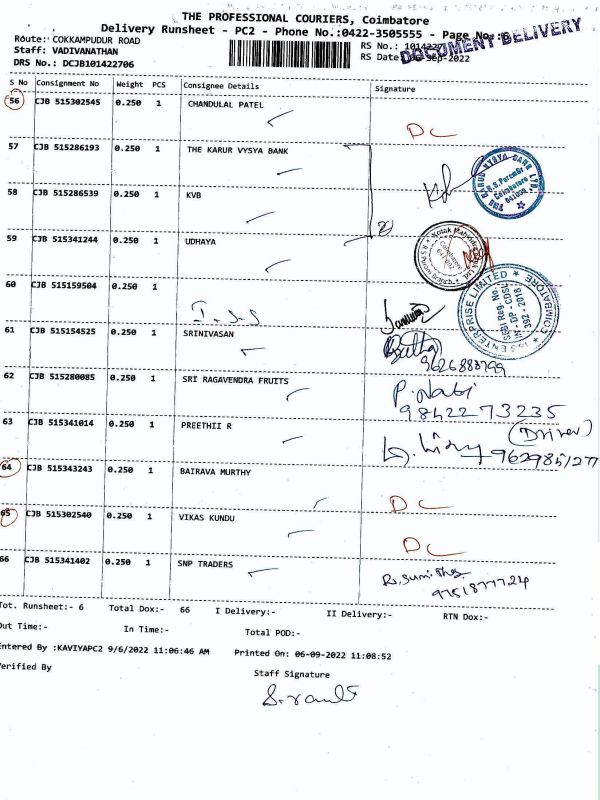 THE PROFESSIONAL COURIERS, Coimbatore
Delivery Runsheet - PC2 - Phone No.:0422-3505555 - Page No.:6
DOCUMENT DELIVERY
Route: COKKAMPUDUR ROAD
Staff: VADIVANATHAN
DRS No.: DCJB101422706
RS No.: 1014227
RS Date: 06-Sep-2022
S No Consignment No Weight PCS Consignee Details Signature
56 CJB 515302545 0.250 1 CHANDULAL PATEL DC
57 CJB 515286193 0.250 1 THE KARUR VYSYA BANK
THE KARUR VYSYA BANK LTD
R.S. Puram Br
Coimbatore
58 CJB 515286539 0.250 1 KVB
2)
59 CJB 515341244 0.250 1 UDHAYA
Kotak Mahindra
R S Puram Branch
Coimbatore
60 CJB 515159504 0.250 1
I.S.S
ENTERPRISE LIMITED
COIMBATORE
SEBI Reg. No.
IN - DP - CDSL
392 - 2018
61 CJB 515154525 0.250 1 SRINIVASAN
9626888799
62 CJB 515280085 0.250 1 SRI RAGAVENDRA FRUITS P. Nabi
9842273235
63 CJB 515341014 0.250 1 PREETHII R
(Driver)
962985127
64 CJB 515343243 0.250 1 BAIRAVA MURTHY DC
65 CJB 515302540 0.250 1 VIKAS KUNDU DC
66 CJB 515341402 0.250 1 SNP TRADERS
9751877724
Tot. Runsheet:- 6 Total Dox:- 66 I Delivery:- II Delivery:- RTN Dox:-
Out Time:- In Time:- Total POD:-
Entered By :KAVIYAPC2 9/6/2022 11:06:46 AM Printed On: 06-09-2022 11:08:52
Verified By
Staff Signature